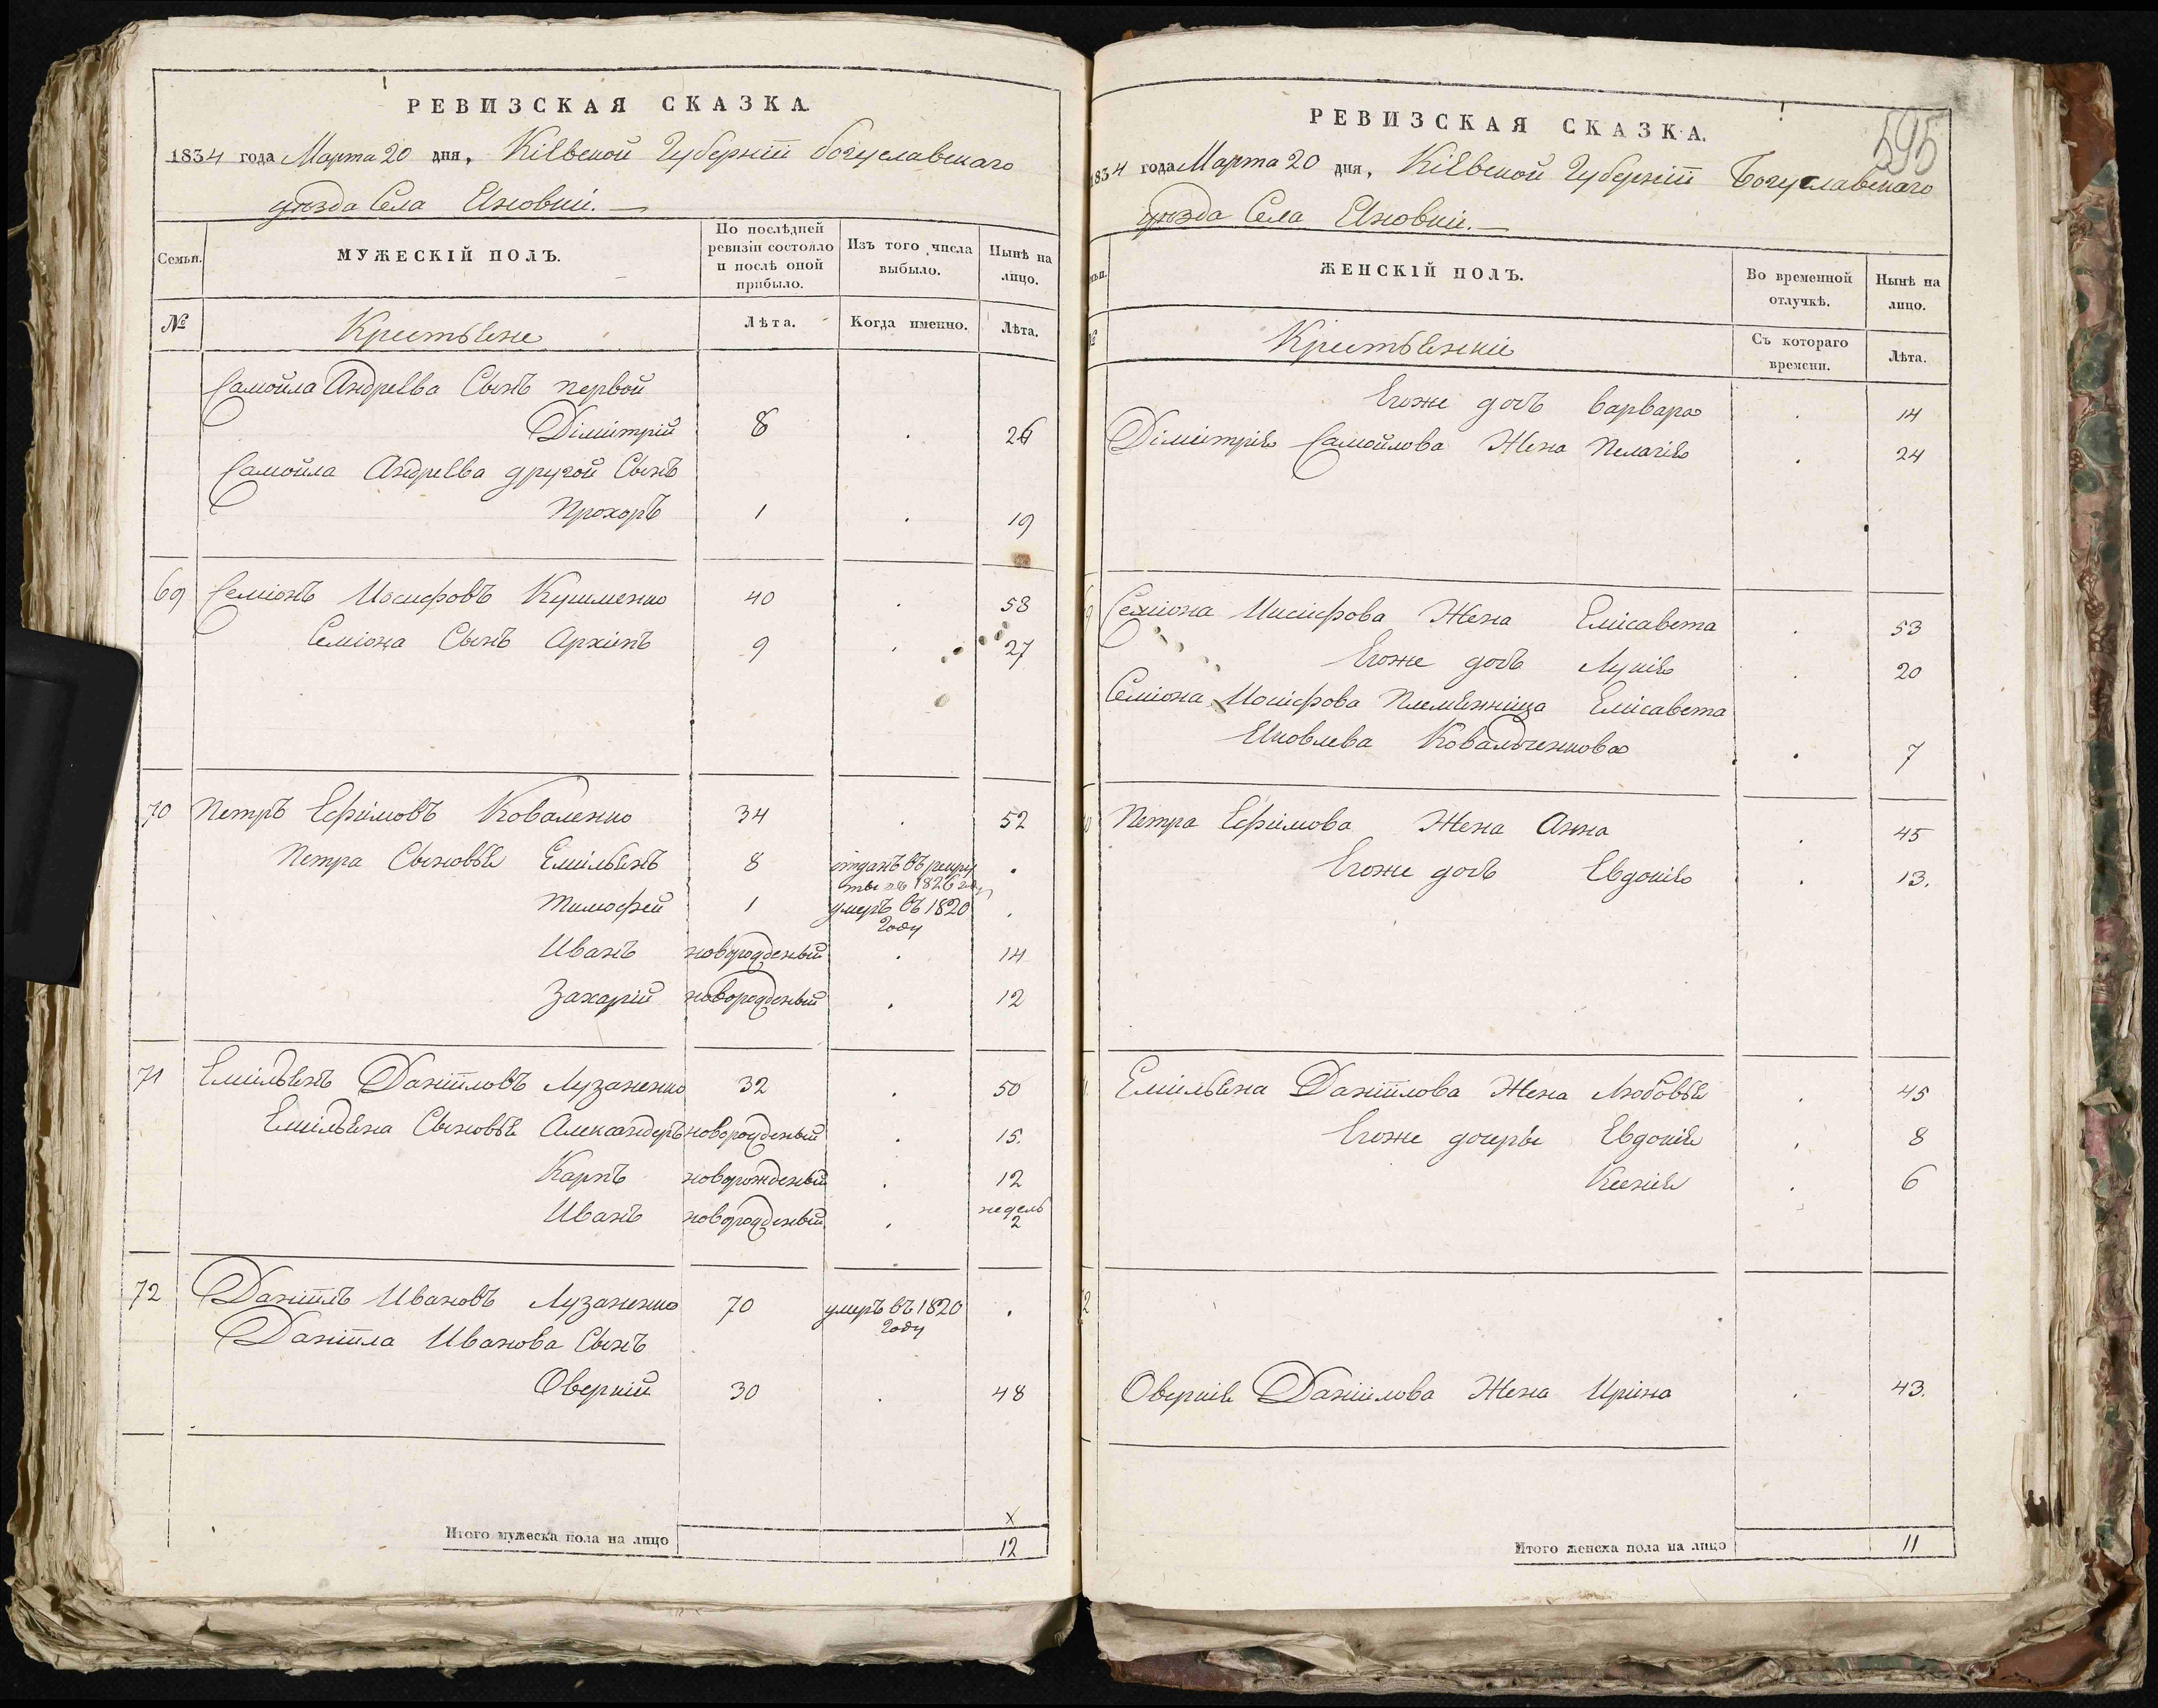 РЕВИЗСКАЯ СКАЗКА
1834 года Марта 20 дня, Кіевской Губерніи богуславскаго
уезда Села Яновки.
Семьи.
МУЖЕСКІЙ ПОЛЪ.
По послѣдней ревизіи состояло и послѣ оной прибыло.
Изъ того числа выбыло.
Нынѣ на лицо.
№
Крестьяне
Лѣта.
Когда именно.
Лѣта.
Самойла Андреева Сынъ первой
Дімитрій 8 . 26
Самойла Андреева другой Сынъ
Прохоръ 1 . 19
69 Семіонъ Иосифовъ 40 . 58
Семіона Сынъ Архипъ 9 . 27
70 Петръ Ефимовъ Коваленко 34 . 52
Петра Сыновья Емільянъ 8 отданъ въ рекру
ты 1826 .
Тимофей 1 умеръ въ 1820 .
году
Иванъ новорожденый . 14
Захарій новорожденый . 12
71 Емільянъ Даніиловъ Лузаненко 32 . 50
Емільяна Сыновья Александеръ новорожденый . 15.
Карпъ новорожденый . 12
Иванъ новорожденый . недель
2
72 Даніилъ Ивановъ Лузаненко 70 умеръ въ 1820 .
году
Даніила Иванова Сынъ
Оверкій 30 . 48
х
Итого мужеска пола на лицо 12
595
РЕВИЗСКАЯ СКАЗКА.
1834 года Марта 20 дня, Кіевской Губерніи Богуславскаго
уезда Села Яновки.
ЖЕНСКІЙ ПОЛЪ.
Во временной отлучкѣ.
Нынѣ на лицо.
Крестьянки
Съ котораго времени.
Лѣта.
Егоже дочь варвара . 14
Дімитрія Самойлова Жена Пелагія . 24
Семіона Иосифова Жена Елісавета . 53
Егоже дочь Лукія . 20
Семіона Иосифова Племянница Елісавета
Яковлева Ковальченкова . 7
Петра Ефимова Жена Анна . 45
Егоже дочь Евдокія . 13.
Емільяна Даніилова Жена Любовья . 45
Егоже дочеры Евдокія . 8
Ксенія . 6
72
Оверкія Даніилова Жена Ирина . 43.
Итого женска пола на лицо 11